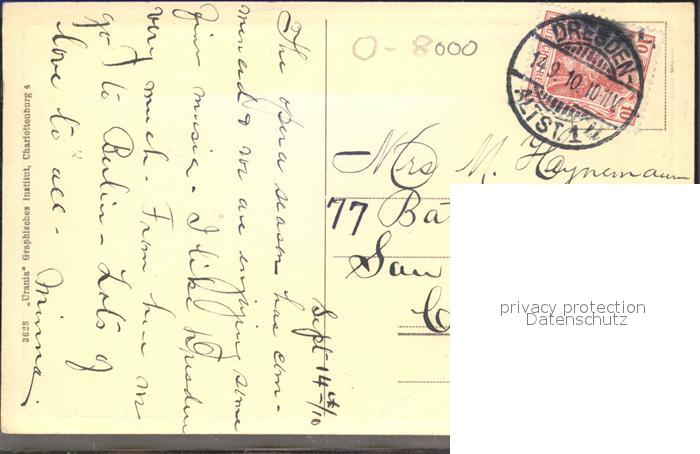 Sept 14th/10
The opera season has com-
menced & we are enjoying some
fine music. I like Dresden
very much. From here we
go to Berlin - Lots of
love to all -
Minna.
O-8000
DRESDEN-
14.9.10.10-11V.
ALTST. 1
10
10
Mrs M. Haynemann
77 Ba
San
C
privacy protection
Datenschutz
3628 „Urania" Graphisches Institut, Charlottenburg 4